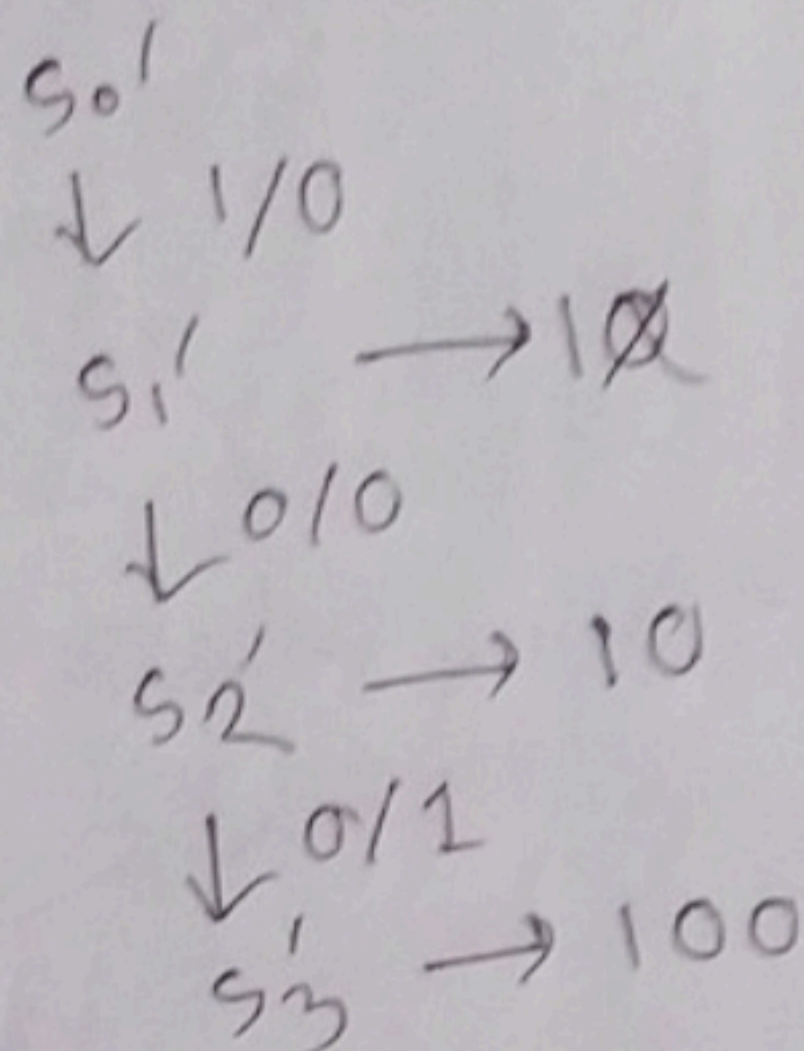 S₀'
↓ 1/0
S₁' → 1
↓ 0/0
S₂' → 10
↓ 0/1
S₃' → 100